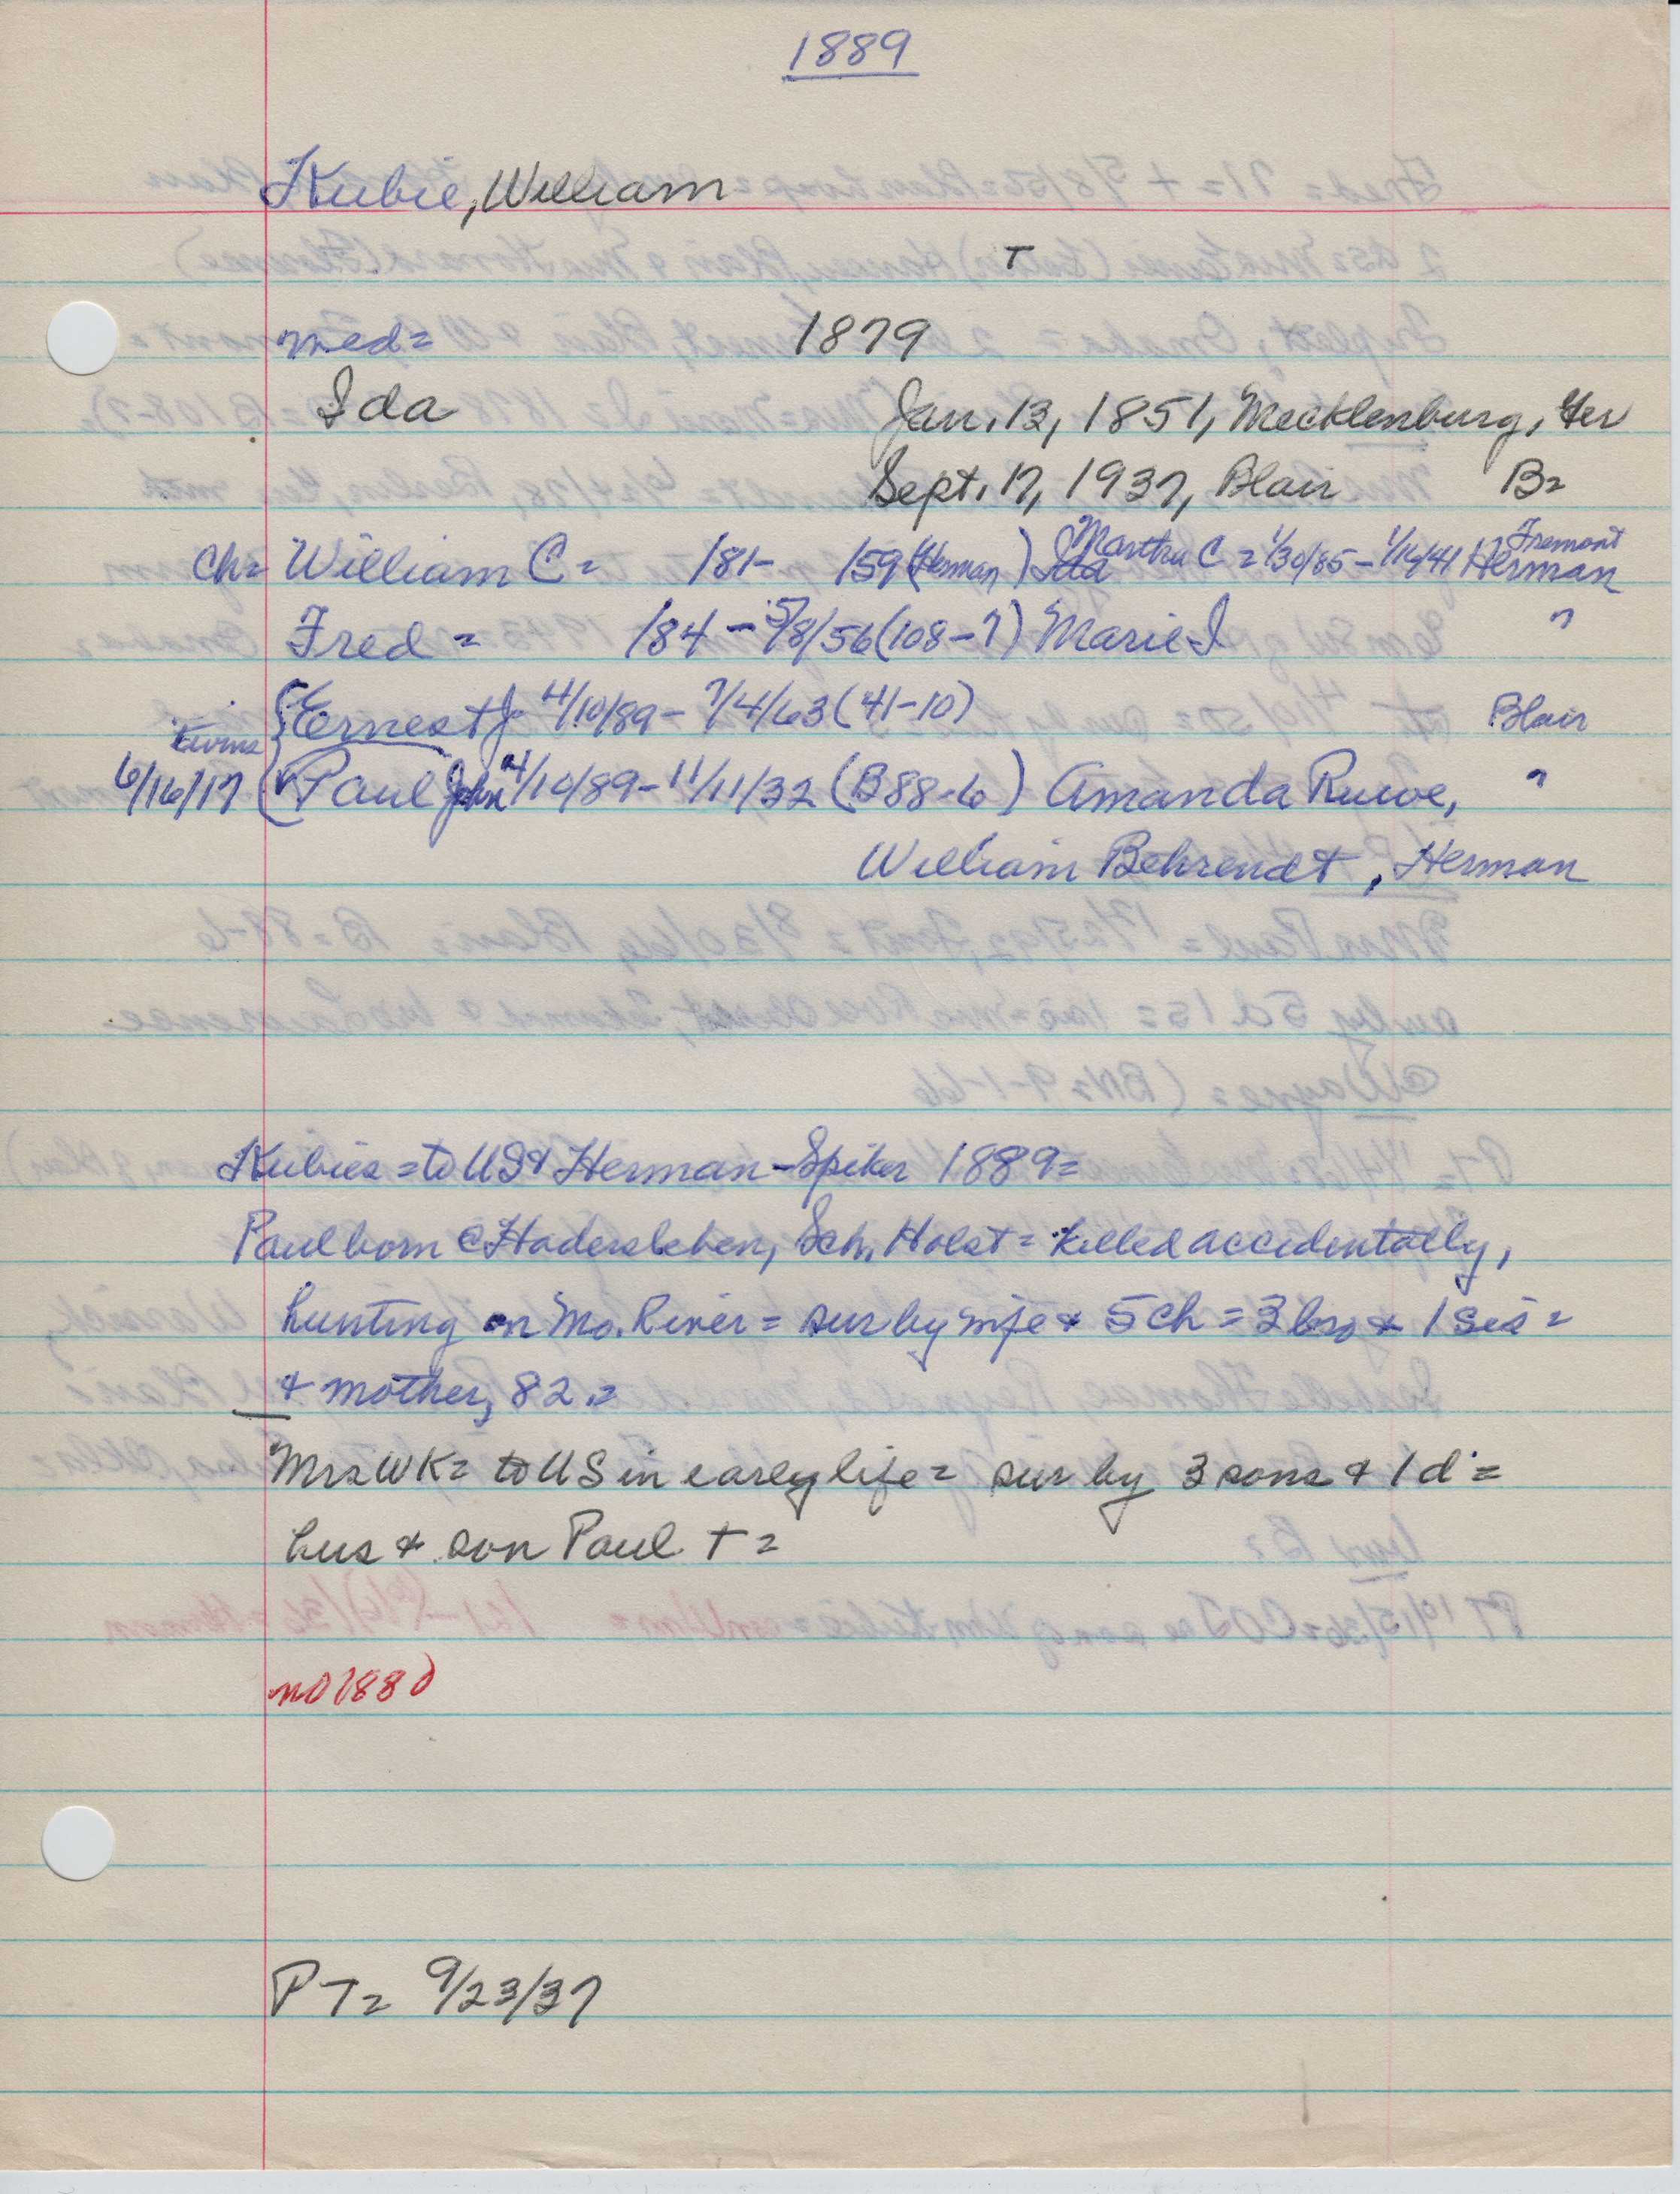 1889
Kubie, William
T
med= 1879
Ida Jan. 13, 1851, Mecklenburg, Ger
Sept. 17, 1937, Blair B=
Fremont
Ch= William C= /81- /59 (Herman) Martha C = 1/30/85 - 1/16/41 Herman
Fred = /84 - 5/8/56 (108-7) Marie I "
Ernest J. 4/10/89 - 7/4/63 (41-10) Blair
twins
6/16/17 Paul John 4/10/89 - 11/11/32 (B88-6) Amanda Ruwe, "
William Behrendt, Herman
Kubies = to US & Herman - Spiker 1889=
Paul born @ Hadersleben, Sch. Holst = killed accidentally,
hunting on Mo. River = sur by wife & 5 ch = 3 bro & 1 sis =
& mother, 82.=
Mrs WK= to US in early life = sur by 3 sons & 1 d =
hus & son Paul T =
no 1880
PT= 9/23/37